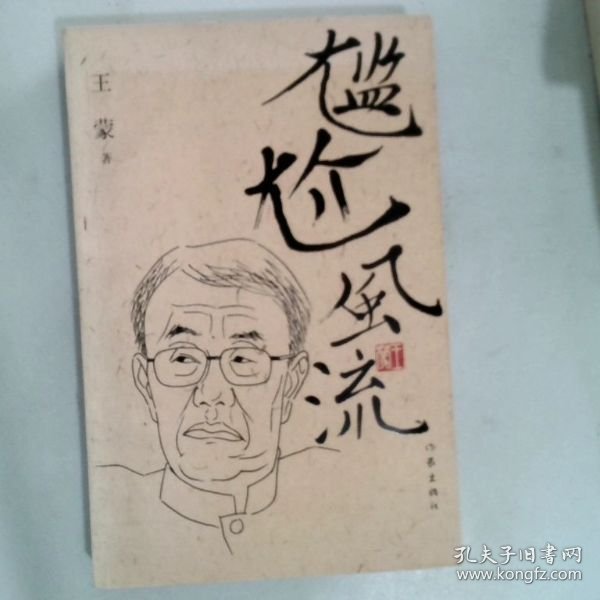 王蒙 著
尴尬風流
作家出版社
孔夫子旧书网
www.kongfz.com